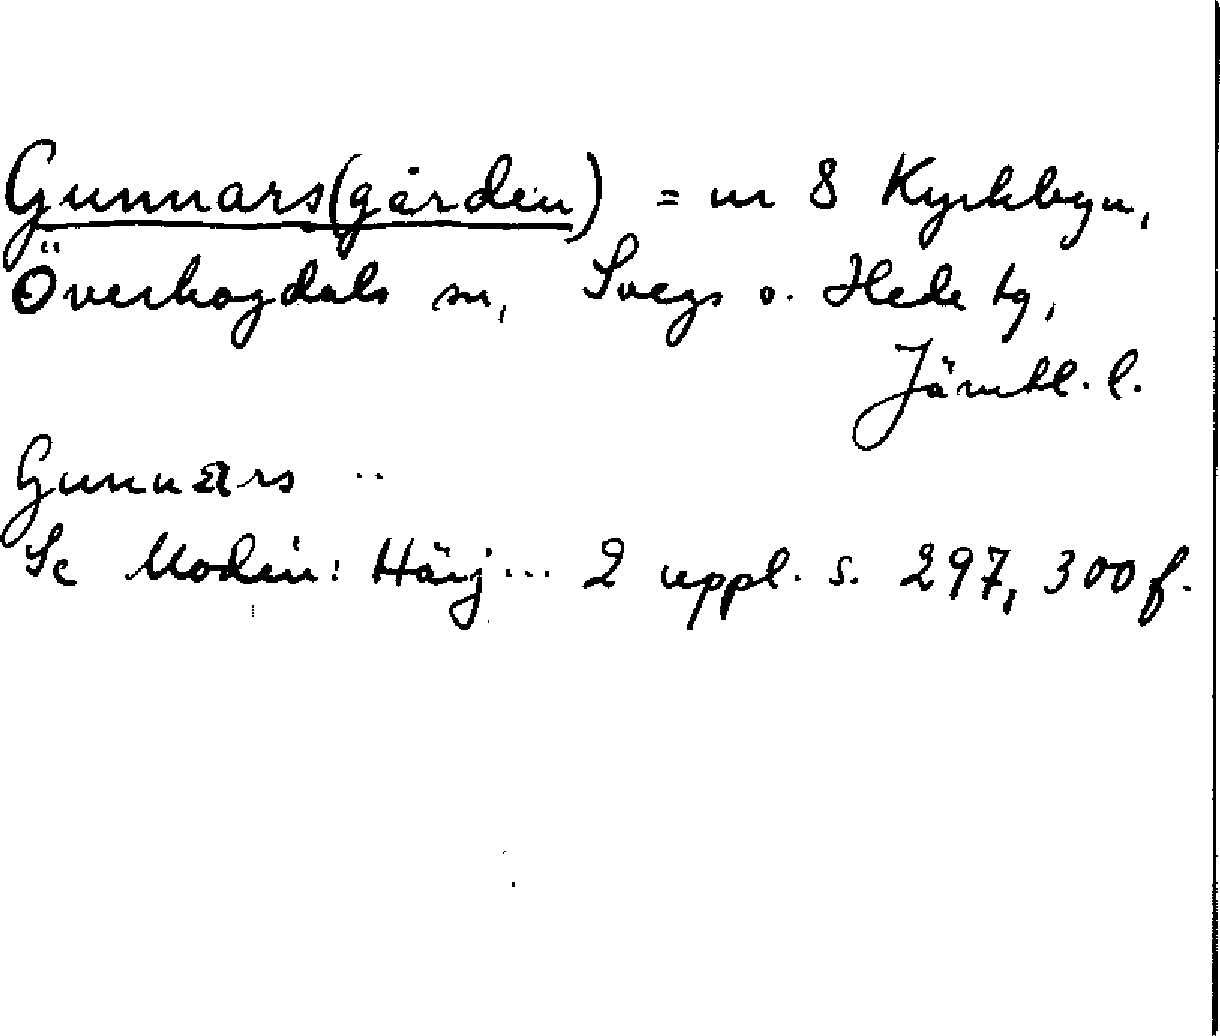 Gunnars(gården) = nr 8 Kyrkbyn,
Överhogdals sn, Svegs o. Hede tg,
Jämtl. l.
Gunnars ..
Se Modin: Härj... 2 uppl. s. 297, 300 f.